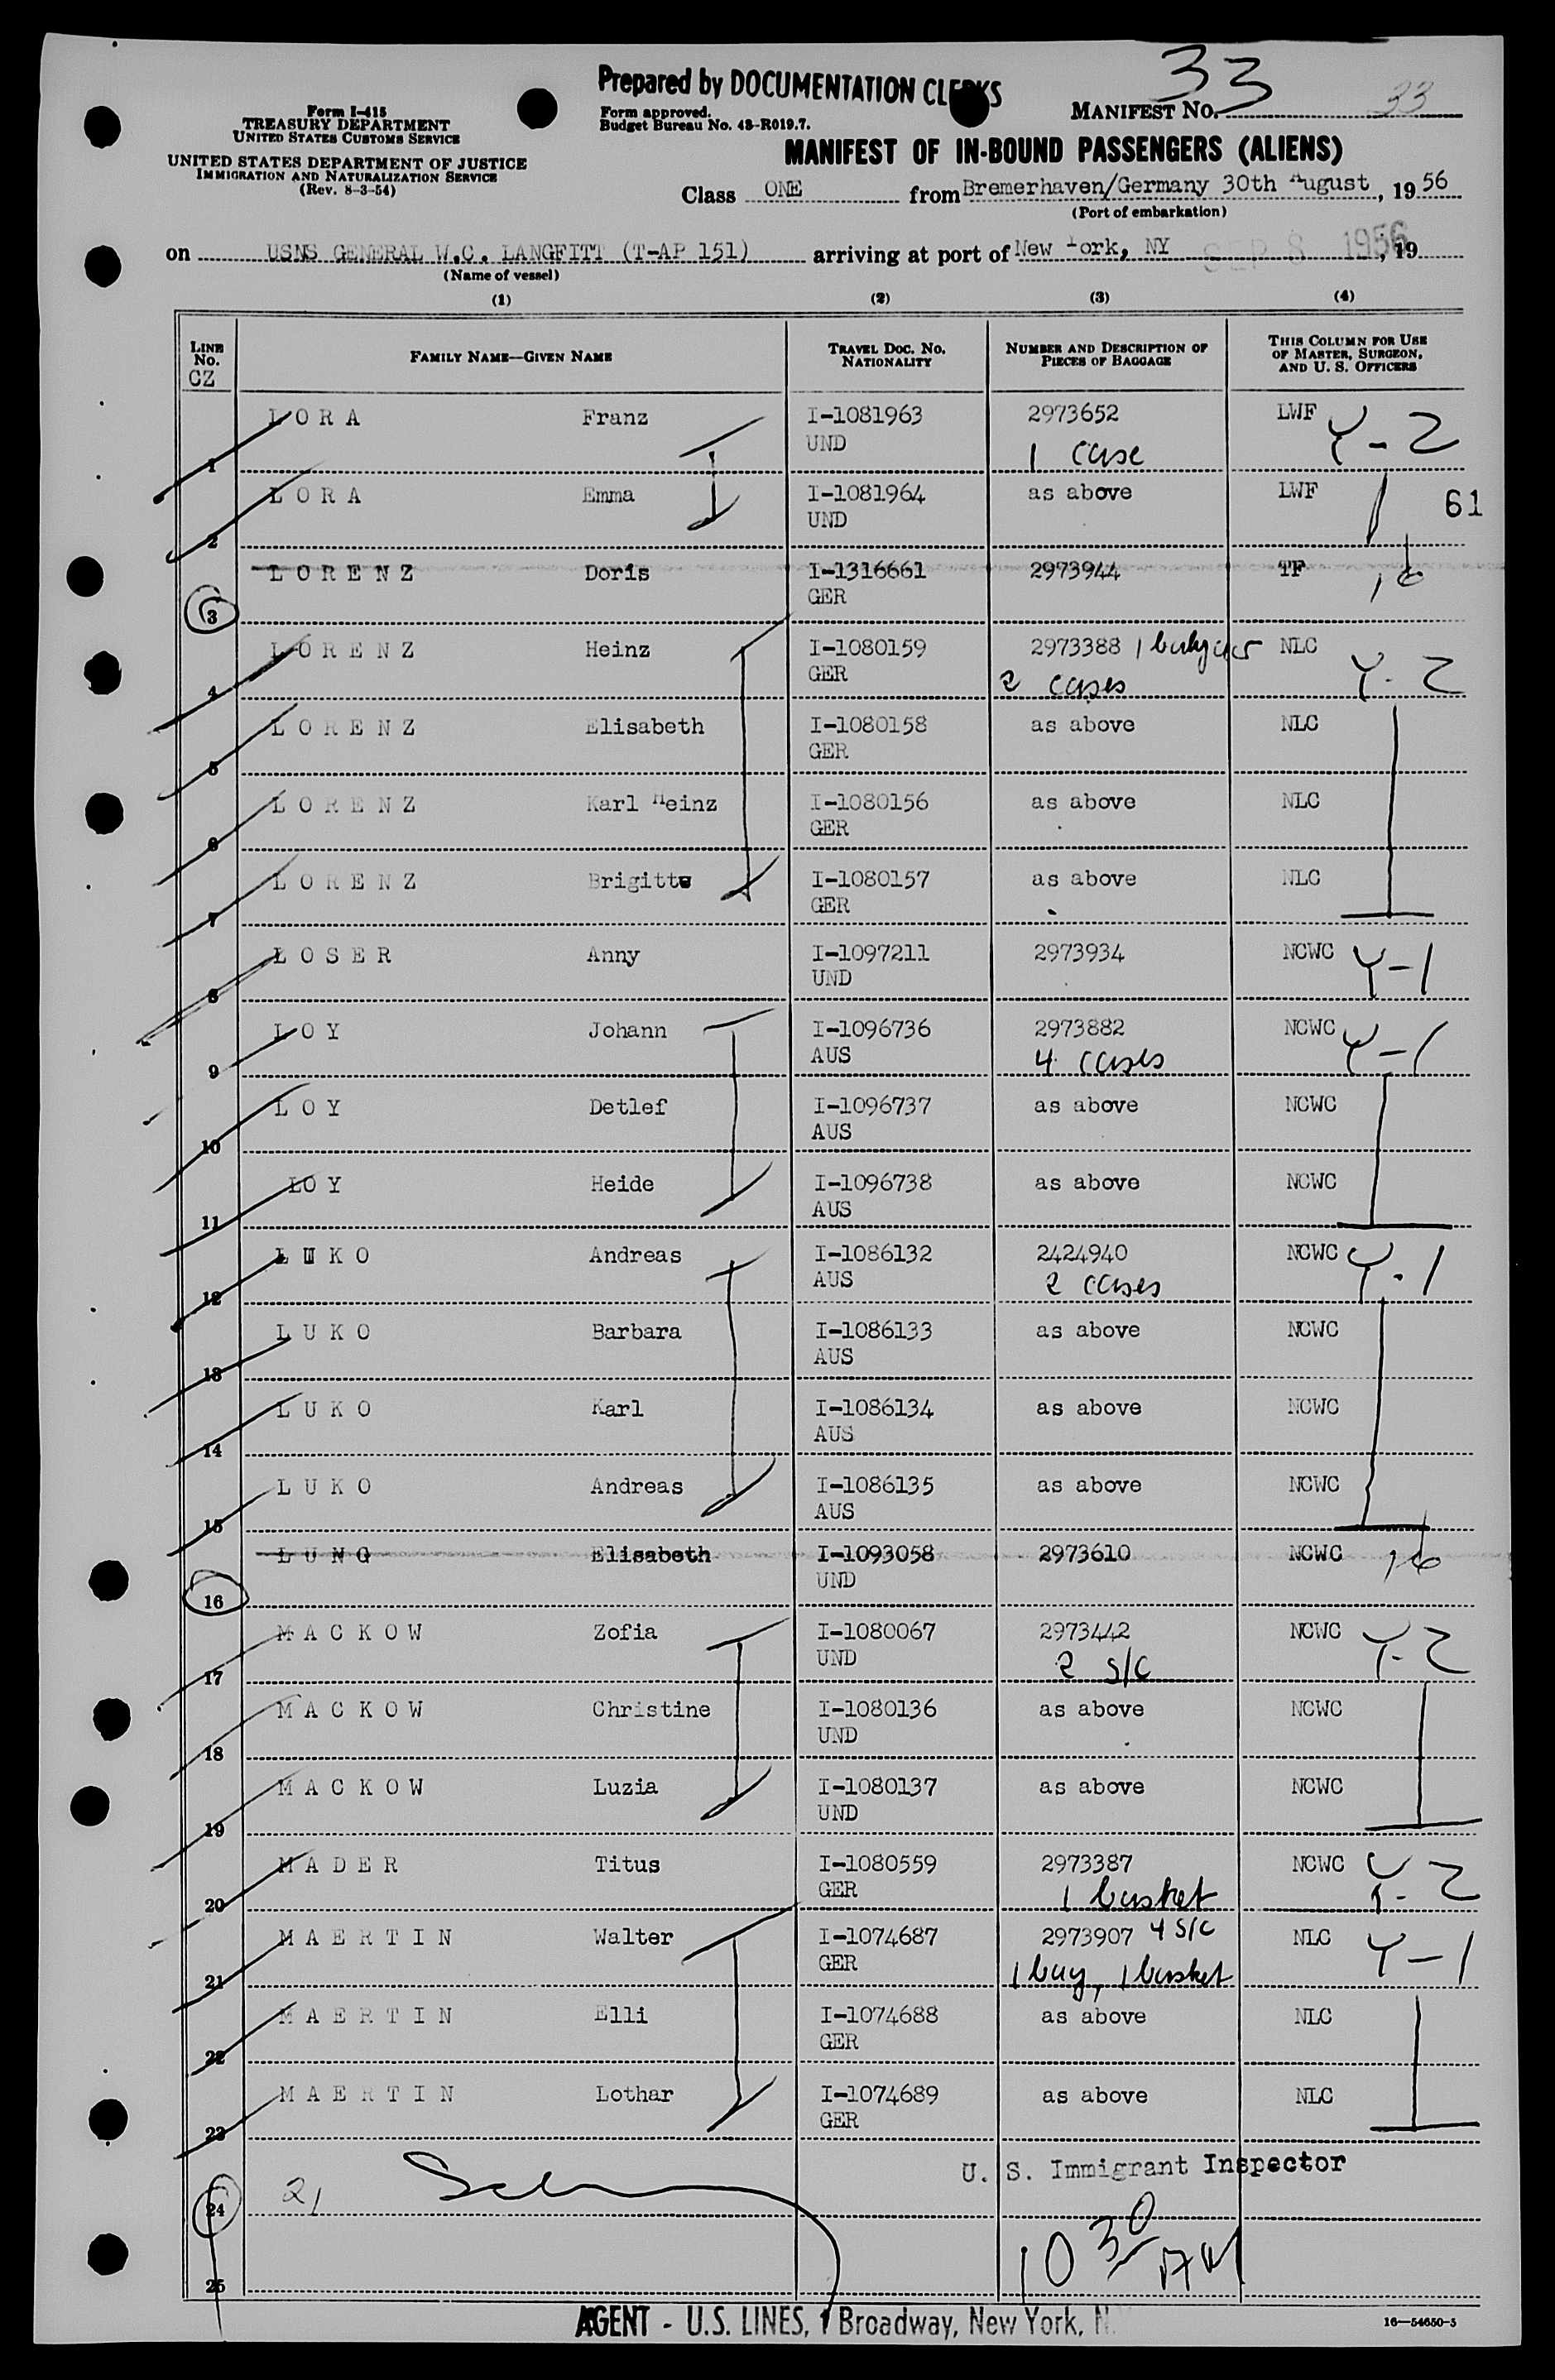 Prepared by DOCUMENTATION CLERKS
33
Form I-415
TREASURY DEPARTMENT
UNITED STATES CUSTOMS SERVICE
UNITED STATES DEPARTMENT OF JUSTICE
IMMIGRATION AND NATURALIZATION SERVICE
(Rev. 8-3-54)
Form approved.
Budget Bureau No. 43-R019.7.
MANIFEST NO. 33
MANIFEST OF IN-BOUND PASSENGERS (ALIENS)
Class ONE from Bremerhaven/Germany 30th August, 19 56
(Port of embarkation)
on USNS GENERAL W.C. LANGFITT (T-AP 151) arriving at port of New York, NY SEP 8 1956, 19
(Name of vessel)
(1) (2) (3) (4)
LINE No. CZ FAMILY NAME—GIVEN NAME TRAVEL DOC. NO. NATIONALITY NUMBER AND DESCRIPTION OF PIECES OF BAGGAGE THIS COLUMN FOR USE OF MASTER, SURGEON, AND U. S. OFFICERS
1 LORA Franz I-1081963 UND 2973652 1 case LWF Y-2
2 LORA Emma I-1081964 UND as above LWF 61
3 LORENZ Doris I-1316661 GER 2973944 TF
4 LORENZ Heinz I-1080159 GER 2973388 2 cases NLC Y-2
5 LORENZ Elisabeth I-1080158 GER as above NLC
6 LORENZ Karl Heinz I-1080156 GER as above NLC
7 LORENZ Brigitte I-1080157 GER as above NLC
8 LOSER Anny I-1097211 UND 2973934 NCWC Y-1
9 LOY Johann I-1096736 AUS 2973882 4 cases NCWC Y-1
10 LOY Detlef I-1096737 AUS as above NCWC
11 LOY Heide I-1096738 AUS as above NCWC
12 LUKO Andreas I-1086132 AUS 2424940 2 cases NCWC Y-1
13 LUKO Barbara I-1086133 AUS as above NCWC
14 LUKO Karl I-1086134 AUS as above NCWC
15 LUKO Andreas I-1086135 AUS as above NCWC
16 LUNG Elisabeth I-1093058 UND 2973610 NCWC
17 MACKOW Zofia I-1080067 UND 2973442 2 S/C NCWC Y-2
18 MACKOW Christine I-1080136 UND as above NCWC
19 MACKOW Luzia I-1080137 UND as above NCWC
20 MADER Titus I-1080559 GER 2973387 1 basket NCWC Y-2
21 MAERTIN Walter I-1074687 GER 2973907 4 S/C 1 bag, 1 basket NLC Y-1
22 MAERTIN Elli I-1074688 GER as above NLC
23 MAERTIN Lothar I-1074689 GER as above NLC
U. S. Immigrant Inspector
24 21
10 30 AM
25
AGENT - U.S. LINES, 1 Broadway, New York, N.
16—54650-5